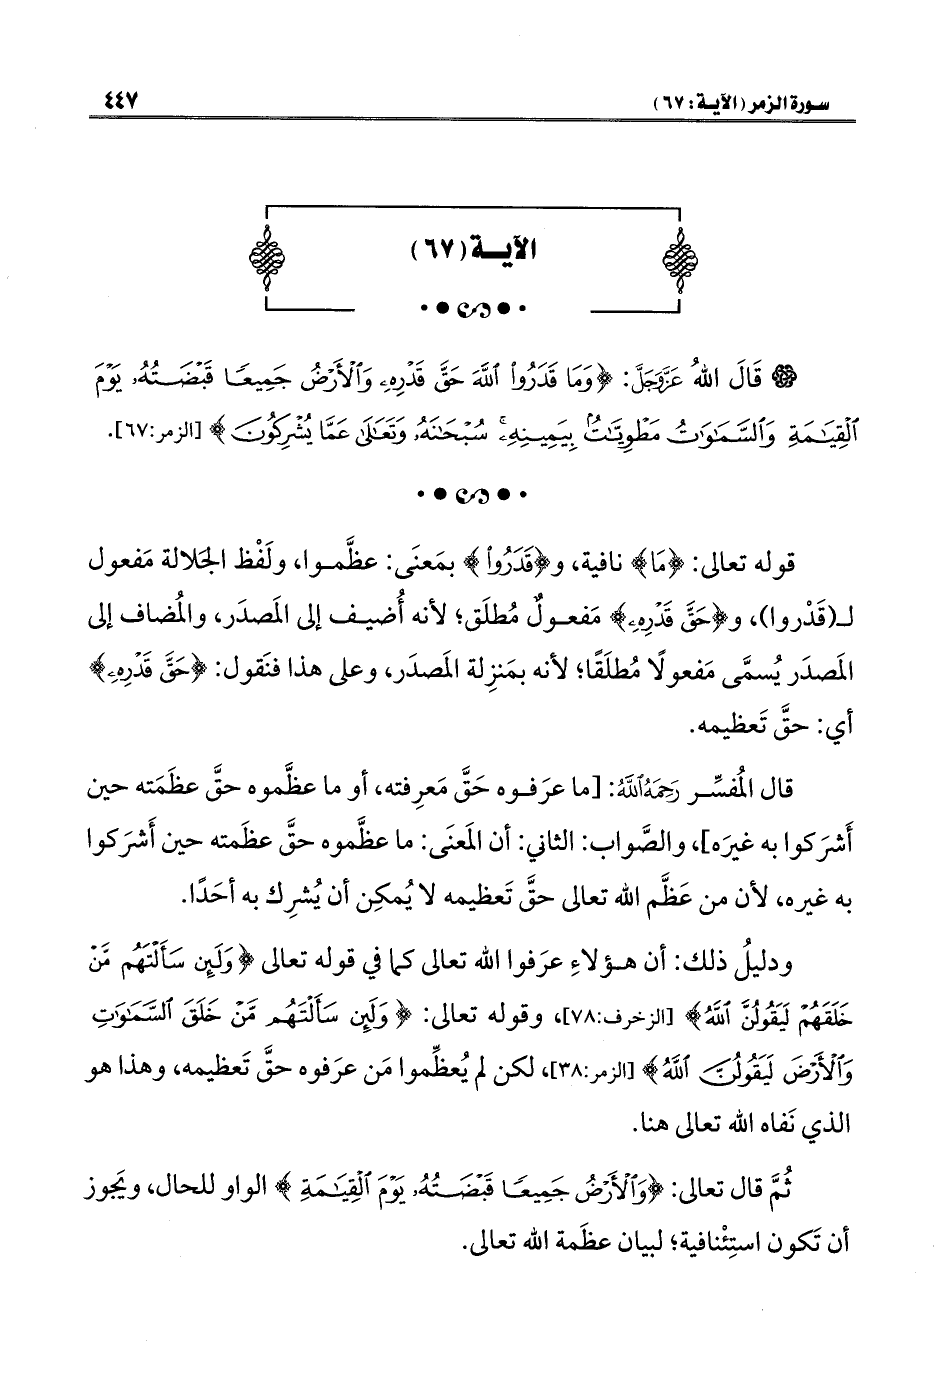 سورة الزمر (الآية: ٦٧)
٤٤٧
الآيــة (٦٧)
قَالَ اللهُ عَزَّوَجَلَّ: ﴿وَمَا قَدَرُواْ ٱللَّهَ حَقَّ قَدْرِهِۦ وَٱلْأَرْضُ جَمِيعًا قَبْضَتُهُۥ يَوْمَ
ٱلْقِيَـٰمَةِ وَٱلسَّمَـٰوَٰتُ مَطْوِيَّـٰتٌۢ بِيَمِينِهِۦۚ سُبْحَـٰنَهُۥ وَتَعَـٰلَىٰ عَمَّا يُشْرِكُونَ﴾ [الزمر:٦٧].
قوله تعالى: ﴿مَا﴾ نافية، و﴿قَدَرُواْ﴾ بمَعنَى: عظَّمـوا، ولَفْظ الجَلالة مَفعول
لـ(قَدْروا)، و﴿حَقَّ قَدْرِهِۦ﴾ مَفعـولٌ مُطلَق؛ لأنه أُضيـف إلى المَصدَر، والمُضاف إلى
المَصدَر يُسمَّى مَفعولًا مُطلَقًا؛ لأنه بمَنزِلة المَصدَر، وعلى هذا فنَقول: ﴿حَقَّ قَدْرِهِۦ﴾
أي: حقَّ تَعظيمه.
قال المُفسِّـر رَحِمَهُ ٱللَّهُ: [ما عرَفـوه حَقَّ مَعرِفته، أو ما عظَّموه حقَّ عظَمَته حين
أَشرَكوا به غيرَه]، والصَّواب: الثاني: أن المَعنَى: ما عظَّموه حقَّ عظَمته حين أَشرَكوا
به غيره، لأن من عَظَّم الله تعالى حقَّ تَعظيمه لا يُمكِن أن يُشرِك به أحَدًا.
ودليلُ ذلك: أن هـؤلاءِ عرَفوا الله تعالى كما في قوله تعالى ﴿وَلَئِن سَأَلْتَهُم مَّنْ
خَلَقَهُمْ لَيَقُولُنَّ ٱللَّهُ﴾ [الزخرف:٧٨]، وقوله تعالى: ﴿وَلَئِن سَأَلْتَهُم مَّنْ خَلَقَ ٱلسَّمَـٰوَٰتِ
وَٱلْأَرْضَ لَيَقُولُنَّ ٱللَّهُ﴾ [الزمر:٣٨]، لكن لم يُعظِّموا مَن عرَفوه حقَّ تَعظيمه، وهذا هو
الذي نَفاه الله تعالى هنا.
ثُمَّ قال تعالى: ﴿وَٱلْأَرْضُ جَمِيعًا قَبْضَتُهُۥ يَوْمَ ٱلْقِيَـٰمَةِ﴾ الواو للحال، ويَجوز
أن تَكون استِئْنافية؛ لبيان عظَمة الله تعالى.